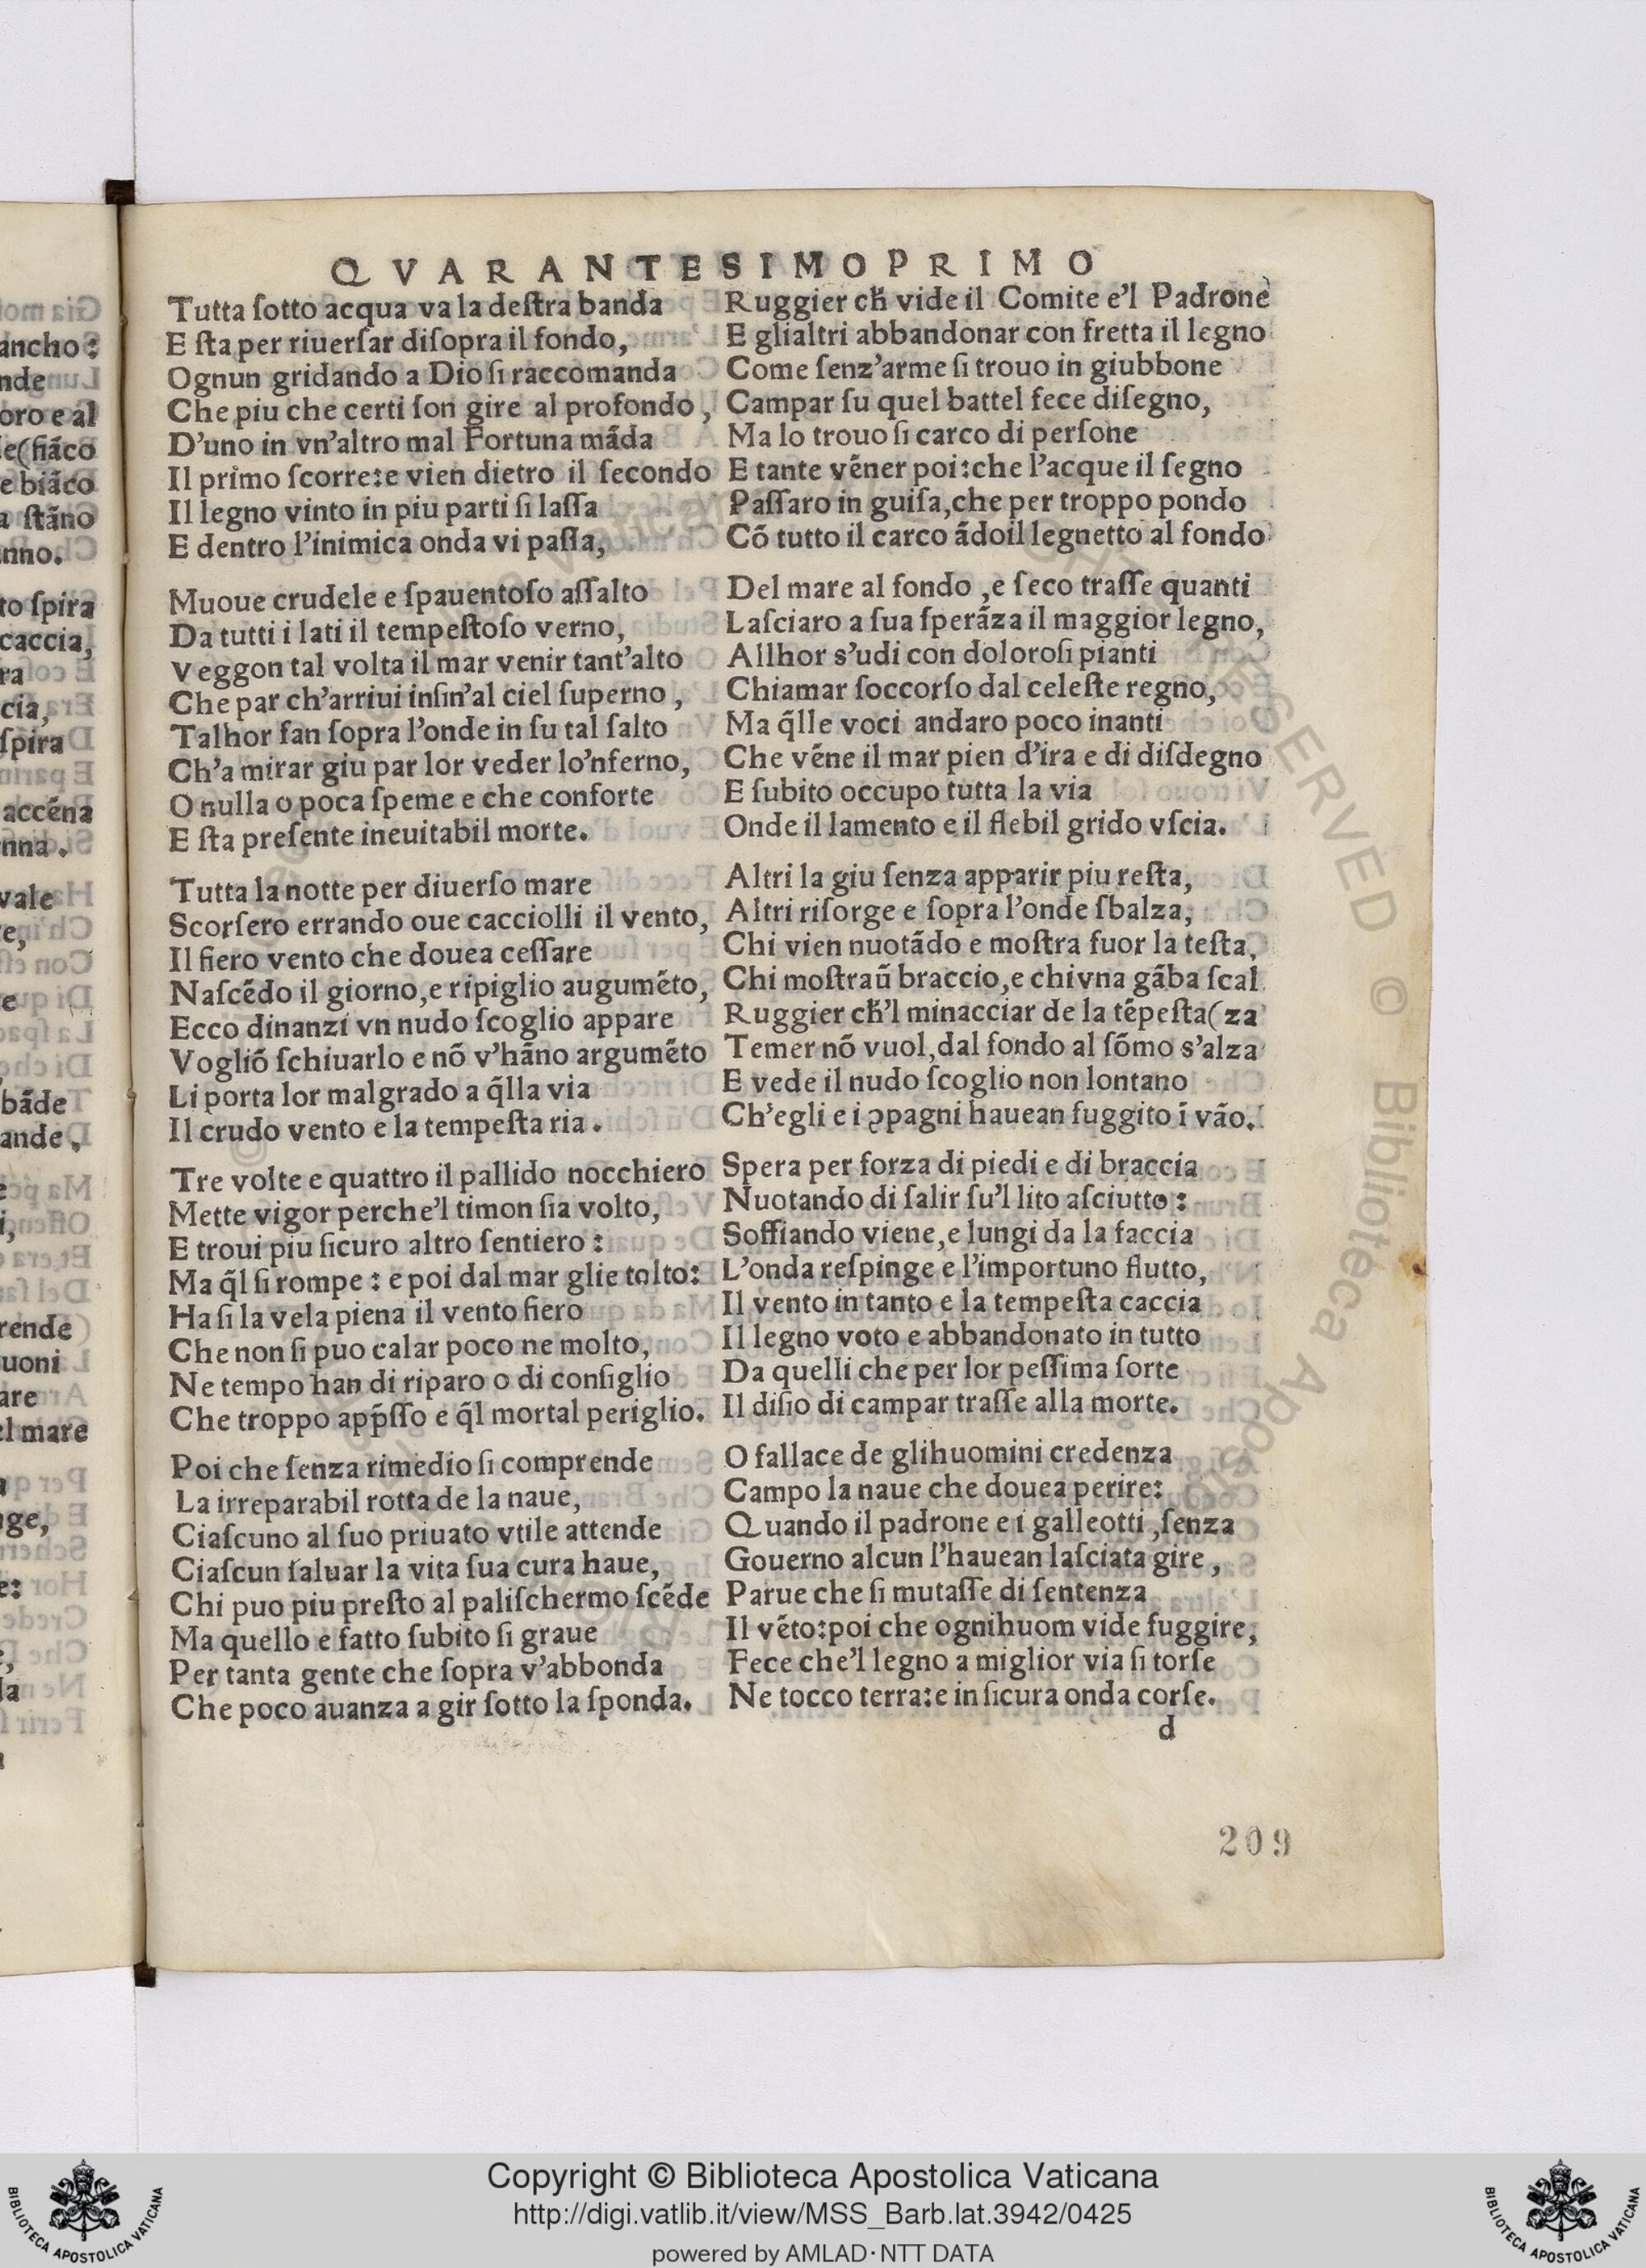 QVARANTESIMOPRIMO
Tutta ſotto acqua va la deſtra banda
E ſta per riuerſar diſopra il fondo,
Ognun gridando a Dio ſi raccomanda
Che piu che certi ſon gire al profondo,
D'uno in vn'altro mal Fortuna mãda
Il primo ſcorre:e vien dietro il ſecondo
Il legno vinto in piu parti ſi laſſa
E dentro l'inimica onda vi paſſa,
Muoue crudele e ſpauentoſo aſſalto
Da tutti i lati il tempeſtoſo verno,
Veggon tal volta il mar venir tant'alto
Che par ch'arriui inſin'al ciel ſuperno,
Talhor fan ſopra l'onde in ſu tal ſalto
Ch'a mirar giu par lor veder lo'nferno,
O nulla o poca ſpeme e che conforte
E ſta preſente ineuitabil morte.
Tutta la notte per diuerſo mare
Scorſero errando oue cacciolli il vento,
Il fiero vento che douea ceſſare
Naſcẽdo il giorno,e ripiglio augumẽto,
Ecco dinanzi vn nudo ſcoglio appare
Vogliõ ſchiuarlo e nõ v'hãno argumẽto
Li porta lor malgrado a q̃lla via
Il crudo vento e la tempeſta ria.
Tre volte e quattro il pallido nocchiero
Mette vigor perche'l timon ſia volto,
E troui piu ſicuro altro ſentiero:
Ma q̃l ſi rompe: e poi dal mar glie tolto:
Ha ſi la vela piena il vento fiero
Che non ſi puo calar poco ne molto,
Ne tempo han di riparo o di conſiglio
Che troppo app̃ſſo e q̃l mortal periglio.
Poi che ſenza rimedio ſi comprende
La irreparabil rotta de la naue,
Ciaſcuno al ſuo priuato vtile attende
Ciaſcun ſaluar la vita ſua cura haue,
Chi puo piu preſto al paliſchermo ſcẽde
Ma quello e fatto ſubito ſi graue
Per tanta gente che ſopra v'abbonda
Che poco auanza a gir ſotto la ſponda.
Ruggier ch̃ vide il Comite e'l Padrone
E glialtri abbandonar con fretta il legno
Come ſenz'arme ſi trouo in giubbone
Campar ſu quel battel fece diſegno,
Ma lo trouo ſi carco di perſone
E tante vẽner poi:che l'acque il ſegno
Paſſaro in guiſa,che per troppo pondo
Cõ tutto il carco ãdoil legnetto al fondo
Del mare al fondo,e ſeco traſſe quanti
Laſciaro a ſua ſperãza il maggior legno,
Allhor s'udi con doloroſi pianti
Chiamar ſoccorſo dal celeſte regno,
Ma q̃lle voci andaro poco inanti
Che vẽne il mar pien d'ira e di diſdegno
E ſubito occupo tutta la via
Onde il lamento e il flebil grido vſcia.
Altri la giu ſenza apparir piu reſta,
Altri riſorge e ſopra l'onde ſbalza,
Chi vien nuotãdo e moſtra fuor la teſta,
Chi moſtraũ braccio,e chivna gãba ſcal
Ruggier ch̃'l minacciar de la tẽpeſta(za
Temer nõ vuol,dal fondo al ſõmo s'alza
E vede il nudo ſcoglio non lontano
Ch'egli e i ꝯpagni hauean fuggito ĩ vão.
Spera per forza di piedi e di braccia
Nuotando di ſalir ſu'l lito aſciutto:
Soffiando viene,e lungi da la faccia
L'onda reſpinge e l'importuno flutto,
Il vento in tanto e la tempeſta caccia
Il legno voto e abbandonato in tutto
Da quelli che per lor peſſima ſorte
Il diſio di campar traſſe alla morte.
O fallace de glihuomini credenza
Campo la naue che douea perire:
Quando il padrone e i galleotti,ſenza
Gouerno alcun l'hauean laſciata gire,
Parue che ſi mutaſſe di ſentenza
Il vẽto:poi che ognihuom vide fuggire,
Fece che'l legno a miglior via ſi torſe
Ne tocco terra:e in ſicura onda corſe.
d
209
Copyright © Biblioteca Apostolica Vaticana
http://digi.vatlib.it/view/MSS_Barb.lat.3942/0425
powered by AMLAD·NTT DATA
BIBLIOTECA APOSTOLICA VATICANA
BIBLIOTECA APOSTOLICA VATICANA